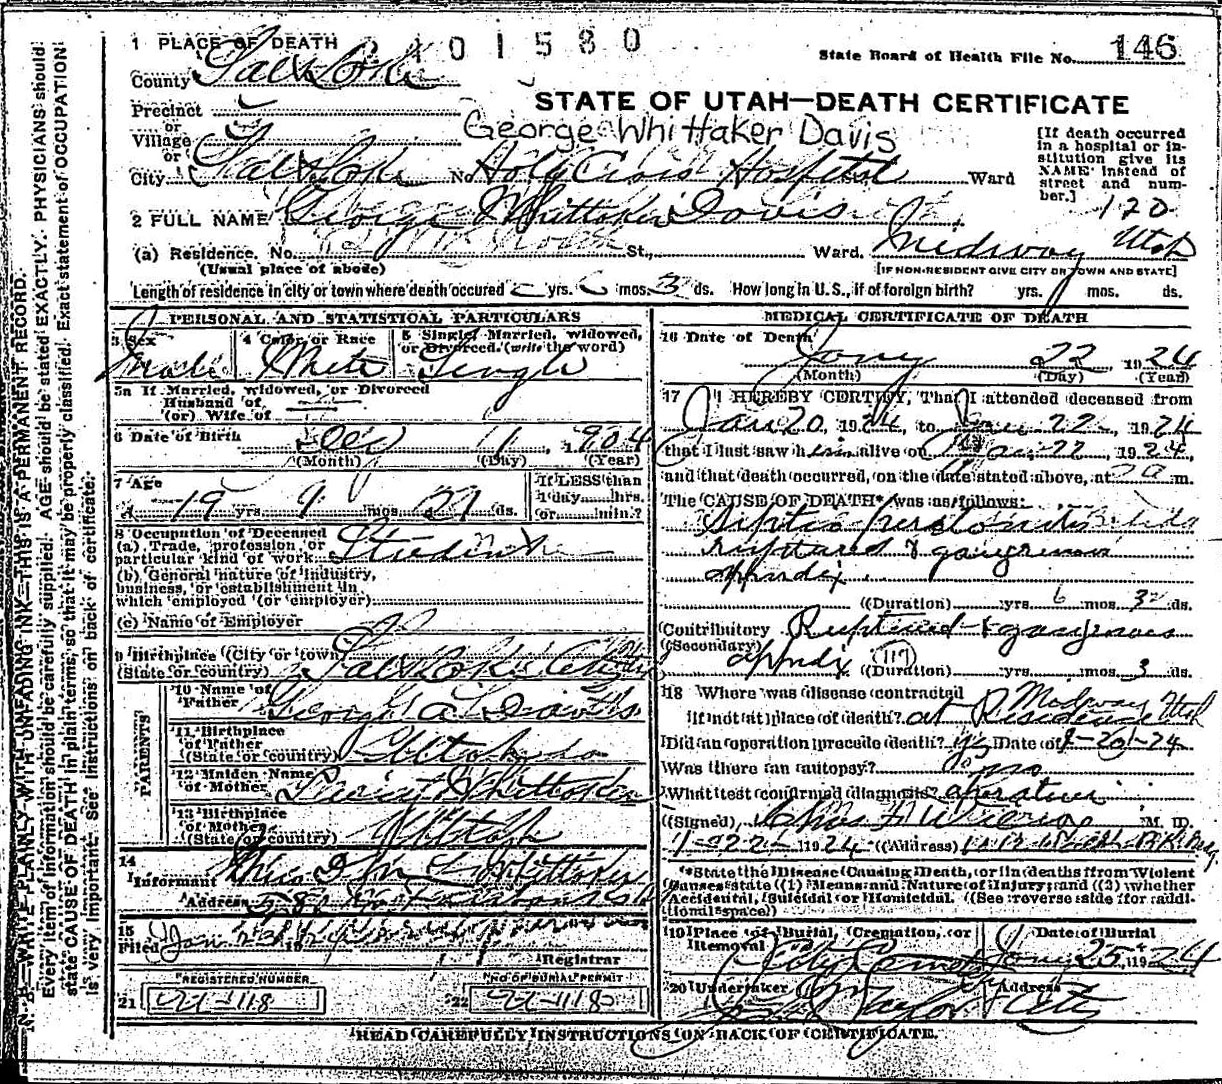 1 PLACE OF DEATH
101580
State Board of Health File No. 146
County Salt Lake
STATE OF UTAH—DEATH CERTIFICATE
Precinct
or
Village
or
George Whittaker Davis
City Salt Lake No. Holy Cross Hospital St., Ward
[If death occurred in a hospital or institution give its NAME instead of street and number.]
120
2 FULL NAME George Whittaker Davis
(a) Residence. No. St., Ward. Medway Utah
(Usual place of abode)
[IF NON-RESIDENT GIVE CITY OR TOWN AND STATE]
Length of residence in city or town where death occured yrs. mos. 3 ds. How long in U.S., if of foreign birth? yrs. mos. ds.
PERSONAL AND STATISTICAL PARTICULARS
3 Sex Male
4 Color or Race White
5 Single, Married, widowed, or Divorced. (write the word) Single
5a If Married, widowed, or Divorced
Husband of
(or) Wife of
6 Date of Birth 1 1904
(Month) (Day) (Year)
7 Age 19 yrs. 9 mos. 21 ds.
If LESS than 1 day hrs. or min.?
8 Occupation of Deceased
(a) Trade, profession or particular kind of work Student
(b) General nature of industry, business, or establishment in which employed (or employer)
(c) Name of Employer
9 Birthplace (City or town)
(State or country) Salt Lake City
PARENTS
10 Name of Father George A. Davis
11 Birthplace of Father
(State or country)
12 Maiden Name of Mother Whittaker
13 Birthplace of Mother
(State or country) Utah
14
Informant Whittaker
Address
15
Filed Jan 19
Registrar
REGISTERED NUMBER
21 22-118
NO OF BURIAL PERMIT
22 22-118
MEDICAL CERTIFICATE OF DEATH
16 Date of Death Jany 22 1924
(Month) (Day) (Year)
17 I HEREBY CERTIFY, That I attended deceased from
Jan 20, 1924, to Jan 22, 1924
that I last saw him alive on Jan 22, 1924,
and that death occurred, on the date stated above, at 2 a m.
The CAUSE OF DEATH* was as follows:
Septic peritonitis
ruptured & gangrenous
appendix.
(Duration) yrs. mos. 3 ds.
Contributory Ruptured & gangrenous
(Secondary)
appendix (117) (Duration) yrs. mos. 3 ds.
18 Where was disease contracted
if not at place of death? at Residence Medway Utah
Did an operation precede death? yes Date of 1-20-24
Was there an autopsy? no
What test confirmed diagnosis? operation
(Signed) Chas. M. D.
1-22- 1924 (Address)
*State the Disease Causing Death, or in deaths from Violent Causes state (1) Means and Nature of Injury; and (2) whether Accidental, Suicidal or Homicidal. (See reverse side for additional space)
19 Place of Burial, Cremation, or Removal City Cemetery
Date of Burial Jany 25, 1924
20 Undertaker Taylor
Address City
READ CAREFULLY INSTRUCTIONS ON BACK OF CERTIFICATE.
N. B.—WRITE PLAINLY WITH UNFADING INK—THIS IS A PERMANENT RECORD.
Every item of information should be carefully supplied. AGE should be stated EXACTLY. PHYSICIANS should
state CAUSE OF DEATH in plain terms, so that it may be properly classified. Exact statement of OCCUPATION
is very important. See instructions on back of certificate.